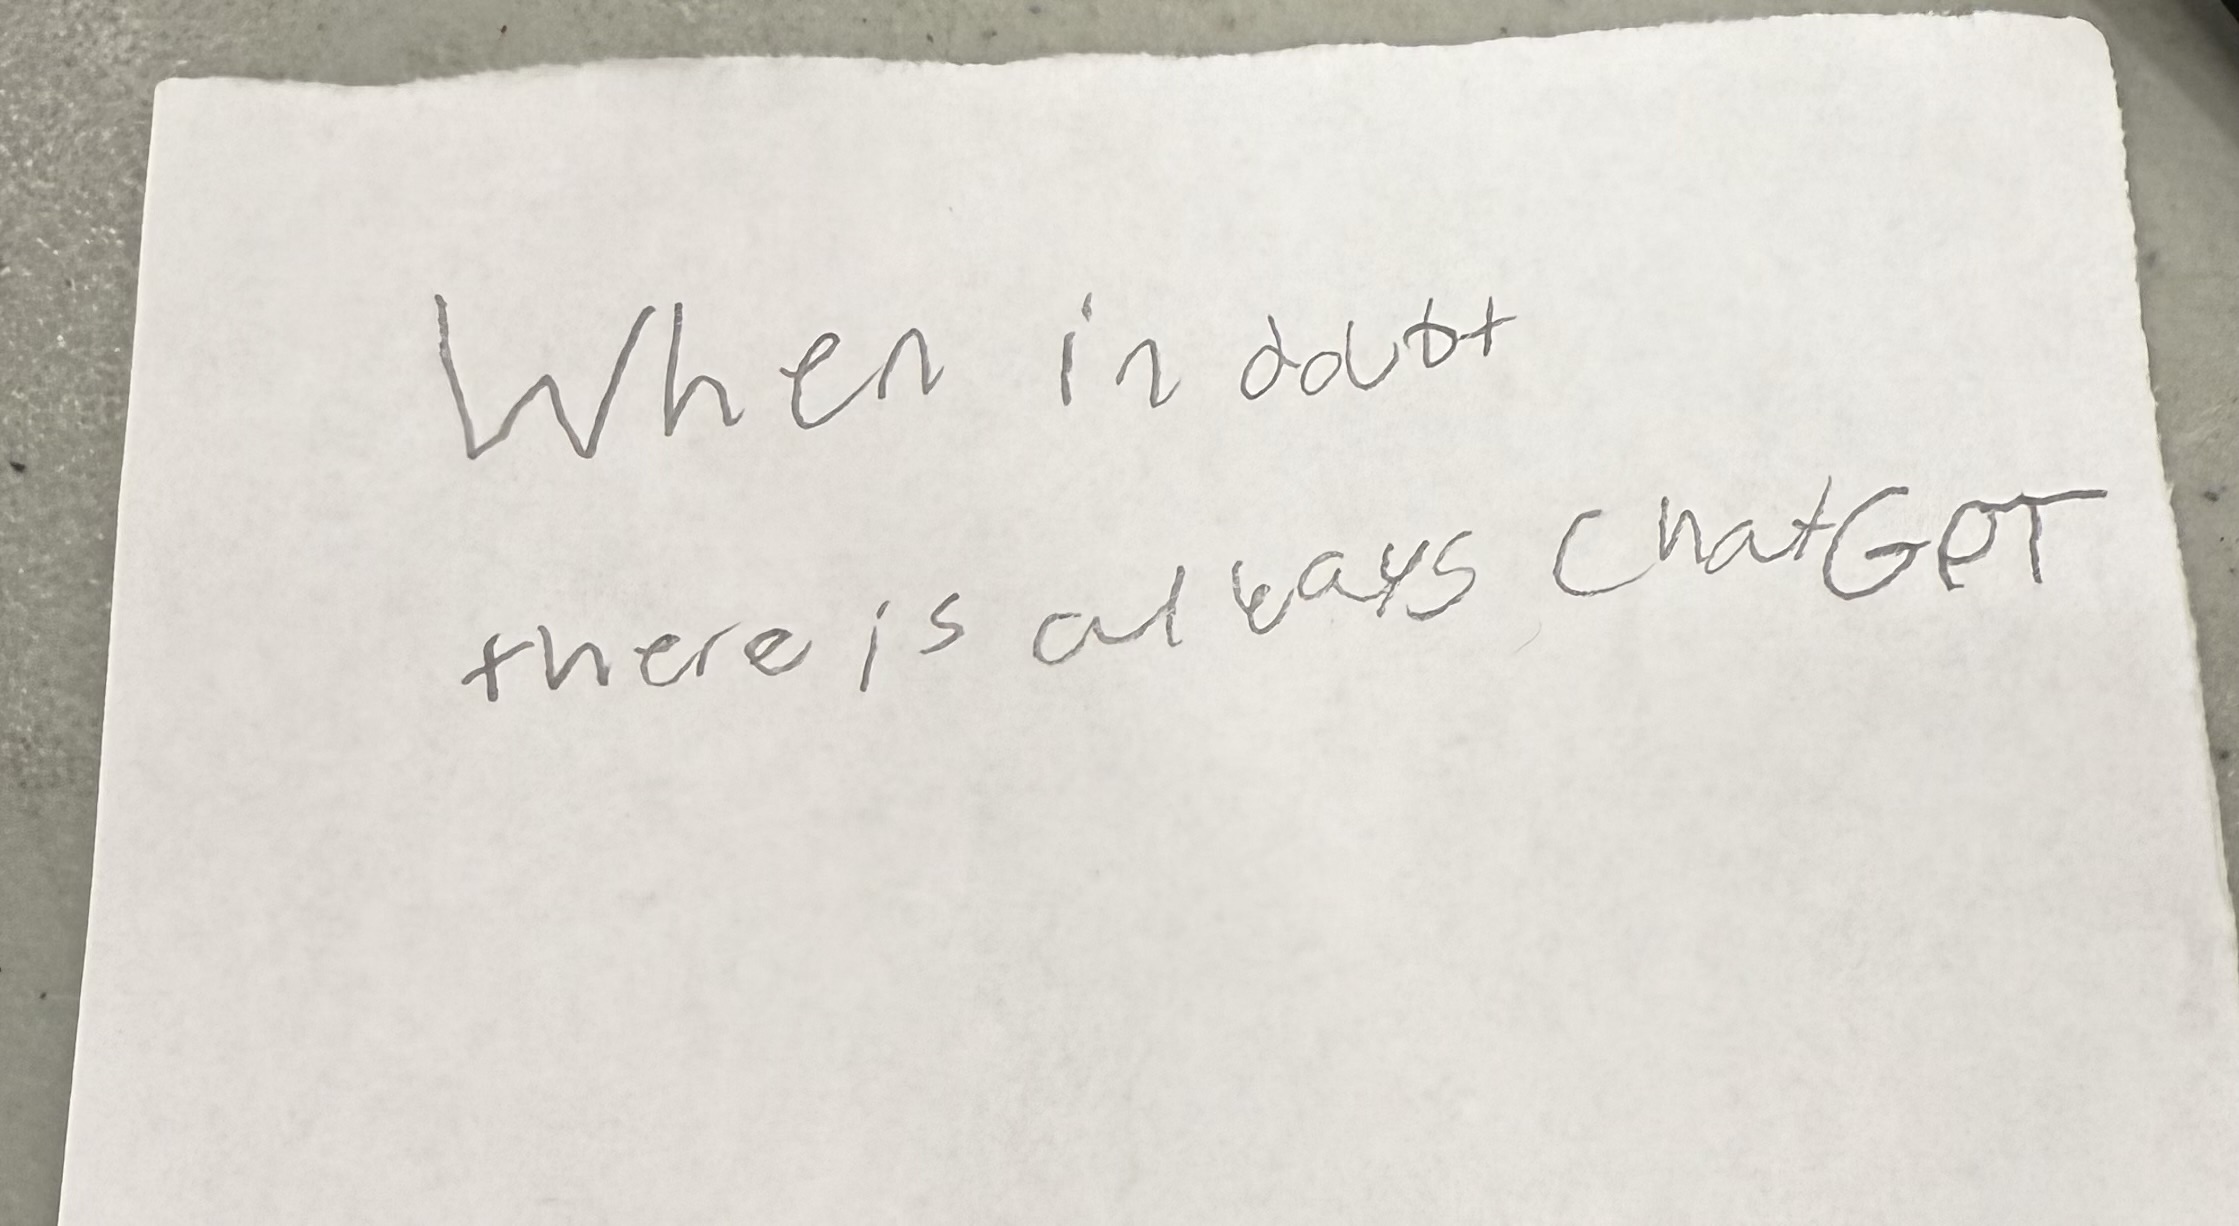 When in doubt
there is always ChatGPT